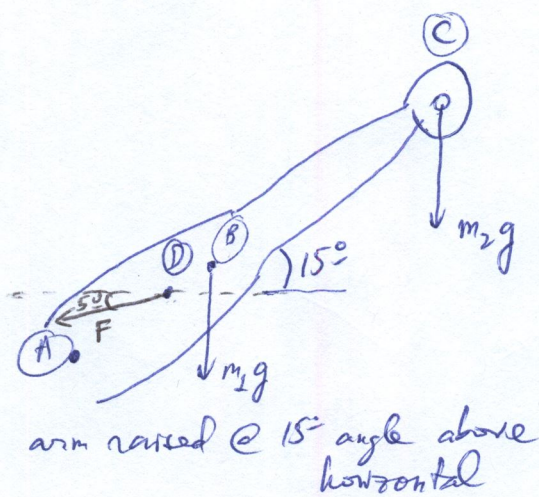 C
m₂g
B
D
15°
5°
F
A
m₁g
arm raised @ 15° angle above
horizontal